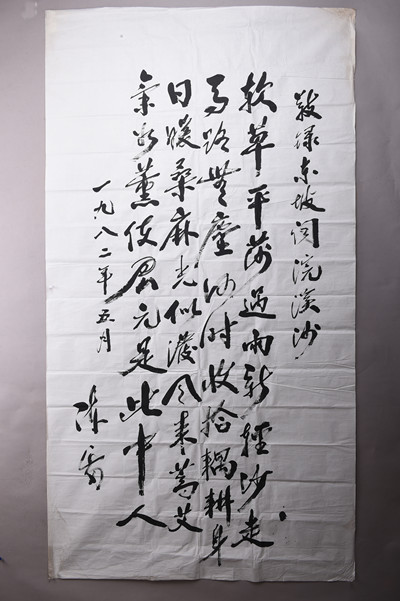 敬录东坡词浣溪沙
软草平莎过雨新轻沙走
马路無塵何时收拾耦耕身
日暖桑麻光似潑风来蒿艾
氣如薰使君元是此中人
一九八二年五月
陈雷